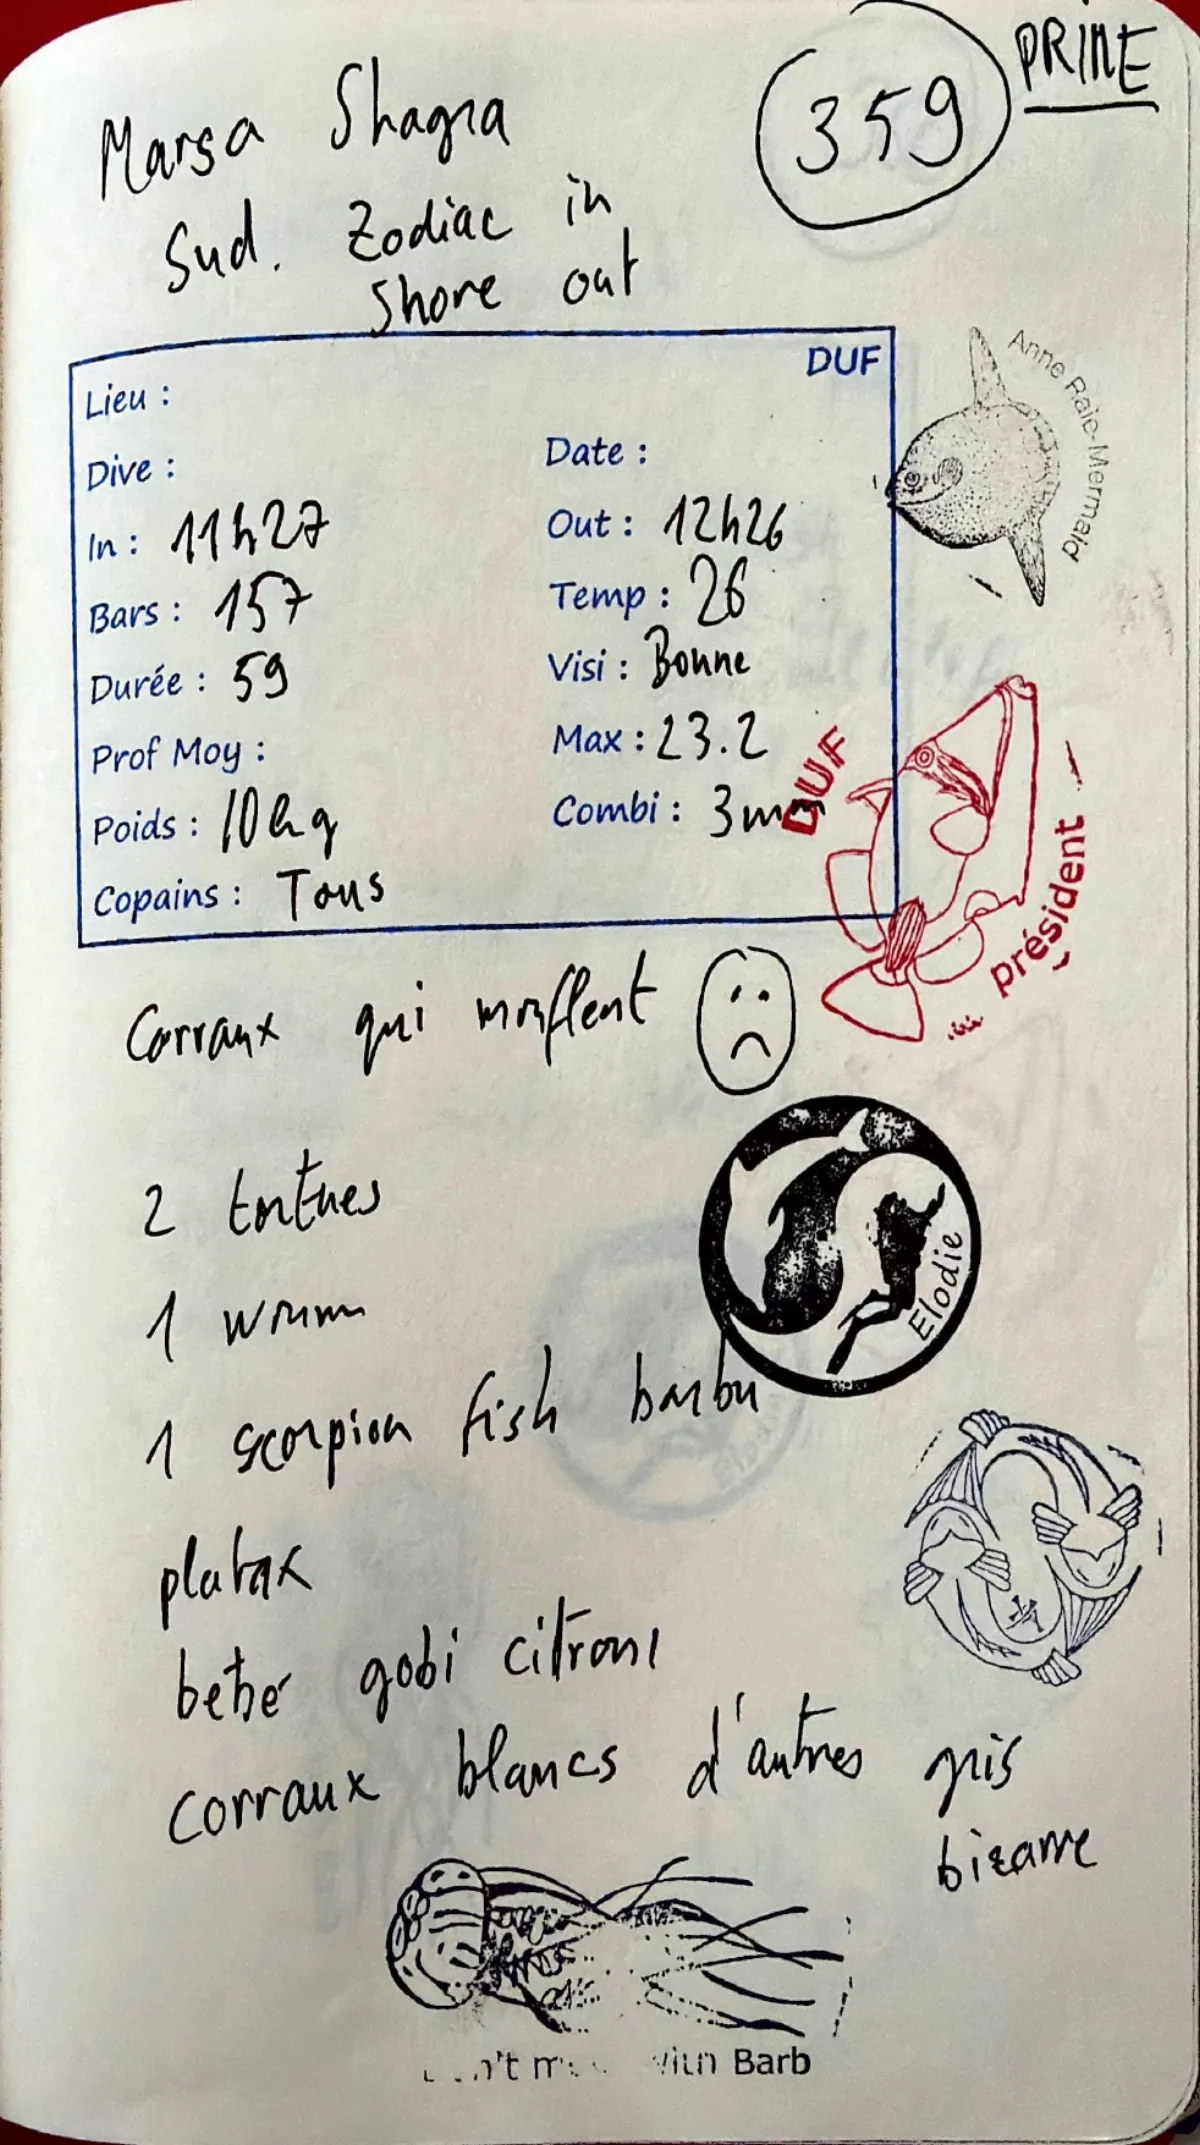 PRIME
359
Marsa Shagra
Sud. Zodiac in
Shore out
DUF
Lieu :
Dive :
Date :
In : 11h27
Out : 12h26
Bars : 157
Temp : 26
Durée : 59
Visi : Bonne
Prof Moy :
Max : 23.2
Poids : 10kg
Combi : 3mm
Copains : Tous
Anne Raie-Mermaid
DUF
président
Corraux qui monflent
2 tortues
1 worm
1 scorpion fish barbu
Elodie
platax
bébé gobi citrons
corraux blancs d'autres gris
bizarre
with Barb